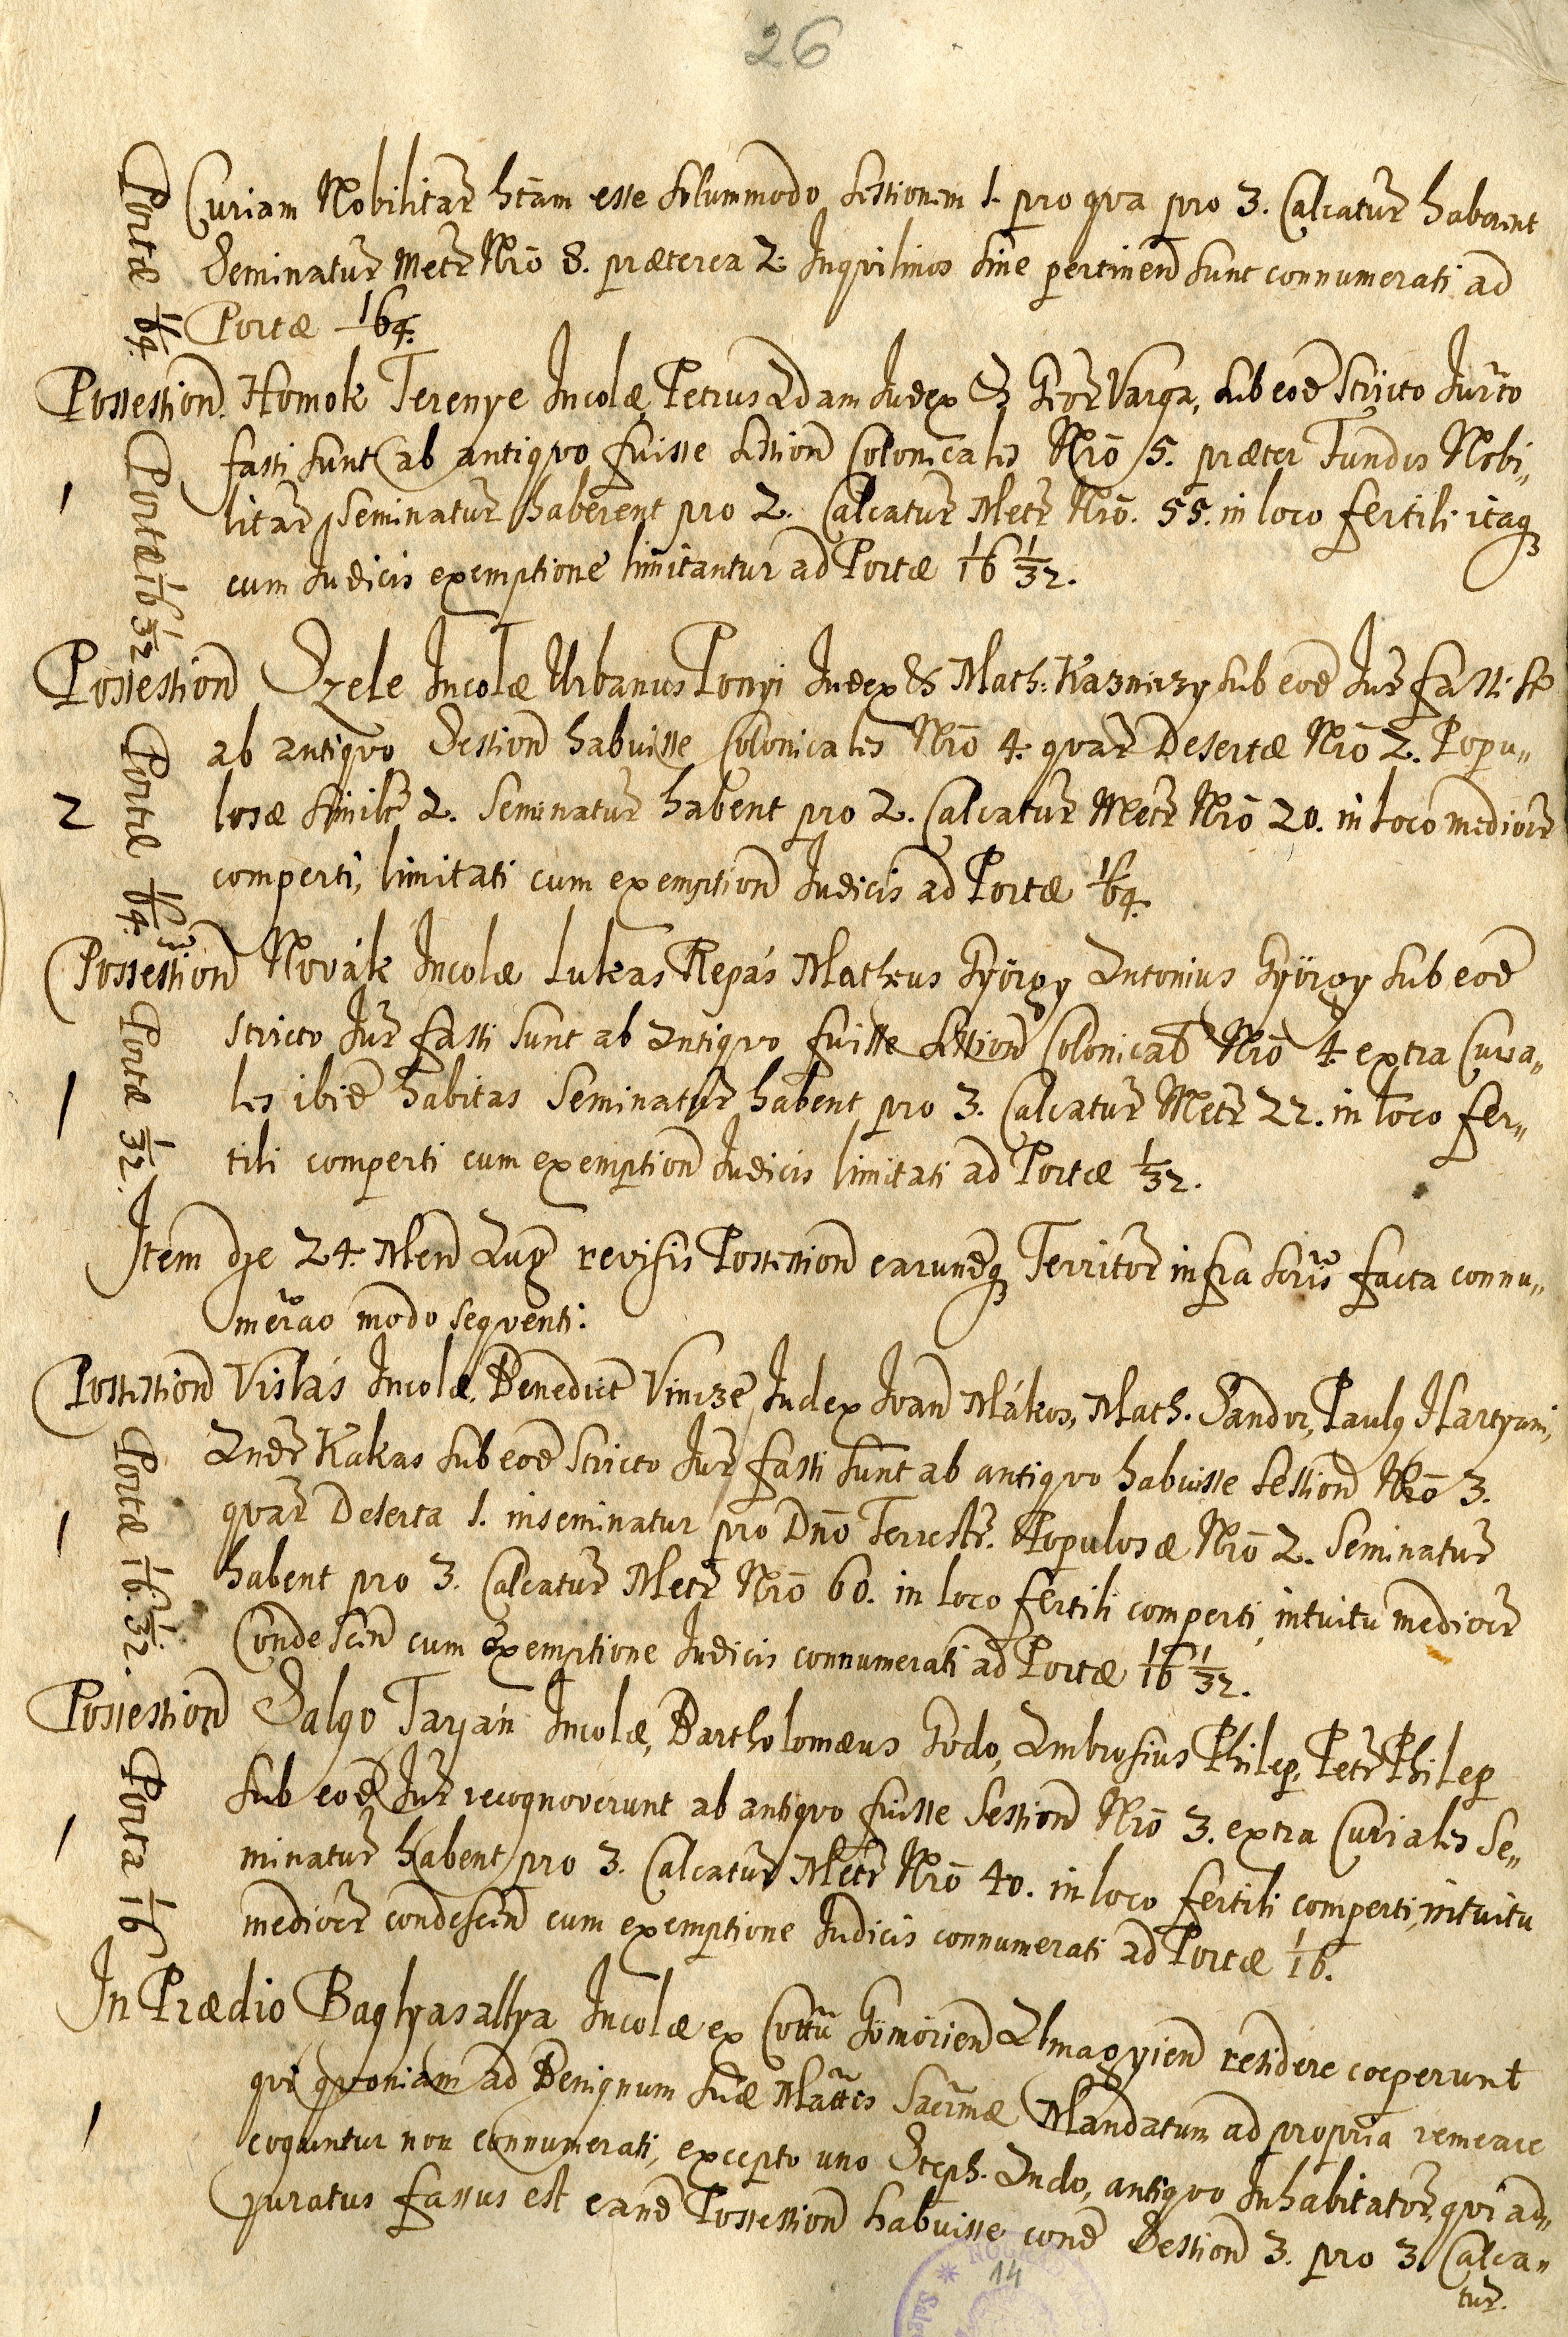 26
Curiam Nobilitar̃ htãm esse solummodo sessionem 1. pro qua pro 3. Calcatur̃ haberent
Seminatur̃ Metr̃ Nrõ 8. præterea 2. Inquilinos sine pertinen̄ sunt connumerati ad
Portæ 1/64.
Portæ 1/64.
Possession̄. Homok Terenye Incolæ Petrus Adam Iudex & Geor̃ Varga, sub eod̄ Stricto Jurto
fassi sunt ab antiquo fuisse Session̄ Colonicales Nrõ 5. præter Fundos Nobi„
litar̃, Seminatur̃ haberent pro 2. Calcatur̃ Metr̃ Nrõ. 55. in loco fertili itaq
cum Iudicis exemptione limitantur ad Portæ 1/16 1/32.
Portæ 1/16 1/32
1
Possession̄ Szele Incolæ Urbanus Ponyi Iudex & Math: Kazniczy sub eod̄ Jur̃ fassi st
ab antiquo Session̄ habuisse Colonicales Nrõ 4. quar̃ Desertæ Nrõ 2. Popu„
losæ similr̃ 2. Seminatur̃ habent pro 2. Calcatur̃ Metr̃ Nrõ 20. in loco mediocr̃
comperti, limitati cum exemption̄ Iudicis ad Portæ 1/64.
Portæ 1/64.
2
Possession̄ Novák Incolæ Lukas Repás Matheus György Antonius György sub eod̄
stricto Jur̃ fassi sunt ab antiquo fuisse Session̄ Colonical̄ Nrõ 4. extra Curia„
les ibid̄ habitas Seminatur̃ habent pro 3. Calcatur̃ Metr̃ 22. in loco fer„
tili comperti cum exemption̄ Iudicis limitati ad Portæ 1/32.
Portæ 1/32.
1
Item die 24. Men̄ Aug revisis Possession̄ earundq Territor̃ infra scris facta connu„
merao modo sequenti.
Possession̄ Vislás Incolæ, Benedict Vincze Iudex Joan̄ Mákos, Math. Sandor, Paulg Hartyani,
Andr̃ Kakas sub eod̄ stricto Jur̃ fassi sunt ab antiquo habuisse Session̄ Nrõ 3.
quar̃ Deserta 1. inseminatur pro Dnõ Terrestr̃. Populosæ Nrõ 2. Seminatur̃
habent pro 3. Calcatur̃ Metr̃ Nrõ 60. in loco fertili comperti, intuitu mediocr̃
Condescen̄ cum exemptione Iudicis connumerati ad Portæ 1/16 1/32.
Portæ 1/16. 1/32.
1
Possession̄ Salgo Tarján Incolæ, Bartholomæus Godo, Ambrosius Philep, Petr̃ Philep
sub eod̄ Jur̃ recognoverunt ab antiquo fuisse Session̄ Nrõ 3. extra Curiales Se„
minatur̃ habent pro 3. Calcatur̃ Metr̃ Nrõ 40. in loco fertili comperti, intuitu
mediocr̃ condescen̄ cum exemptione Iudicis connumerati ad Portæ 1/16.
Porta 1/16
1
In Prædio Baglyasallya Incolæ ex Cottũ Gömörien̄ Almagyien̄ residere coeperunt
qui quoniam ad Benignum suæ Mattis Sacrmæ Mandatum ad propria remeare
coguntur non connumerati, excepto uno Steph. Ando, antiquo Inhabitator̃, qui ad„
juratus fassus est eand̄ Possession̄ habuisse cond̄ Session̄ 3. pro 3. Calca„
tur̃.
1
14